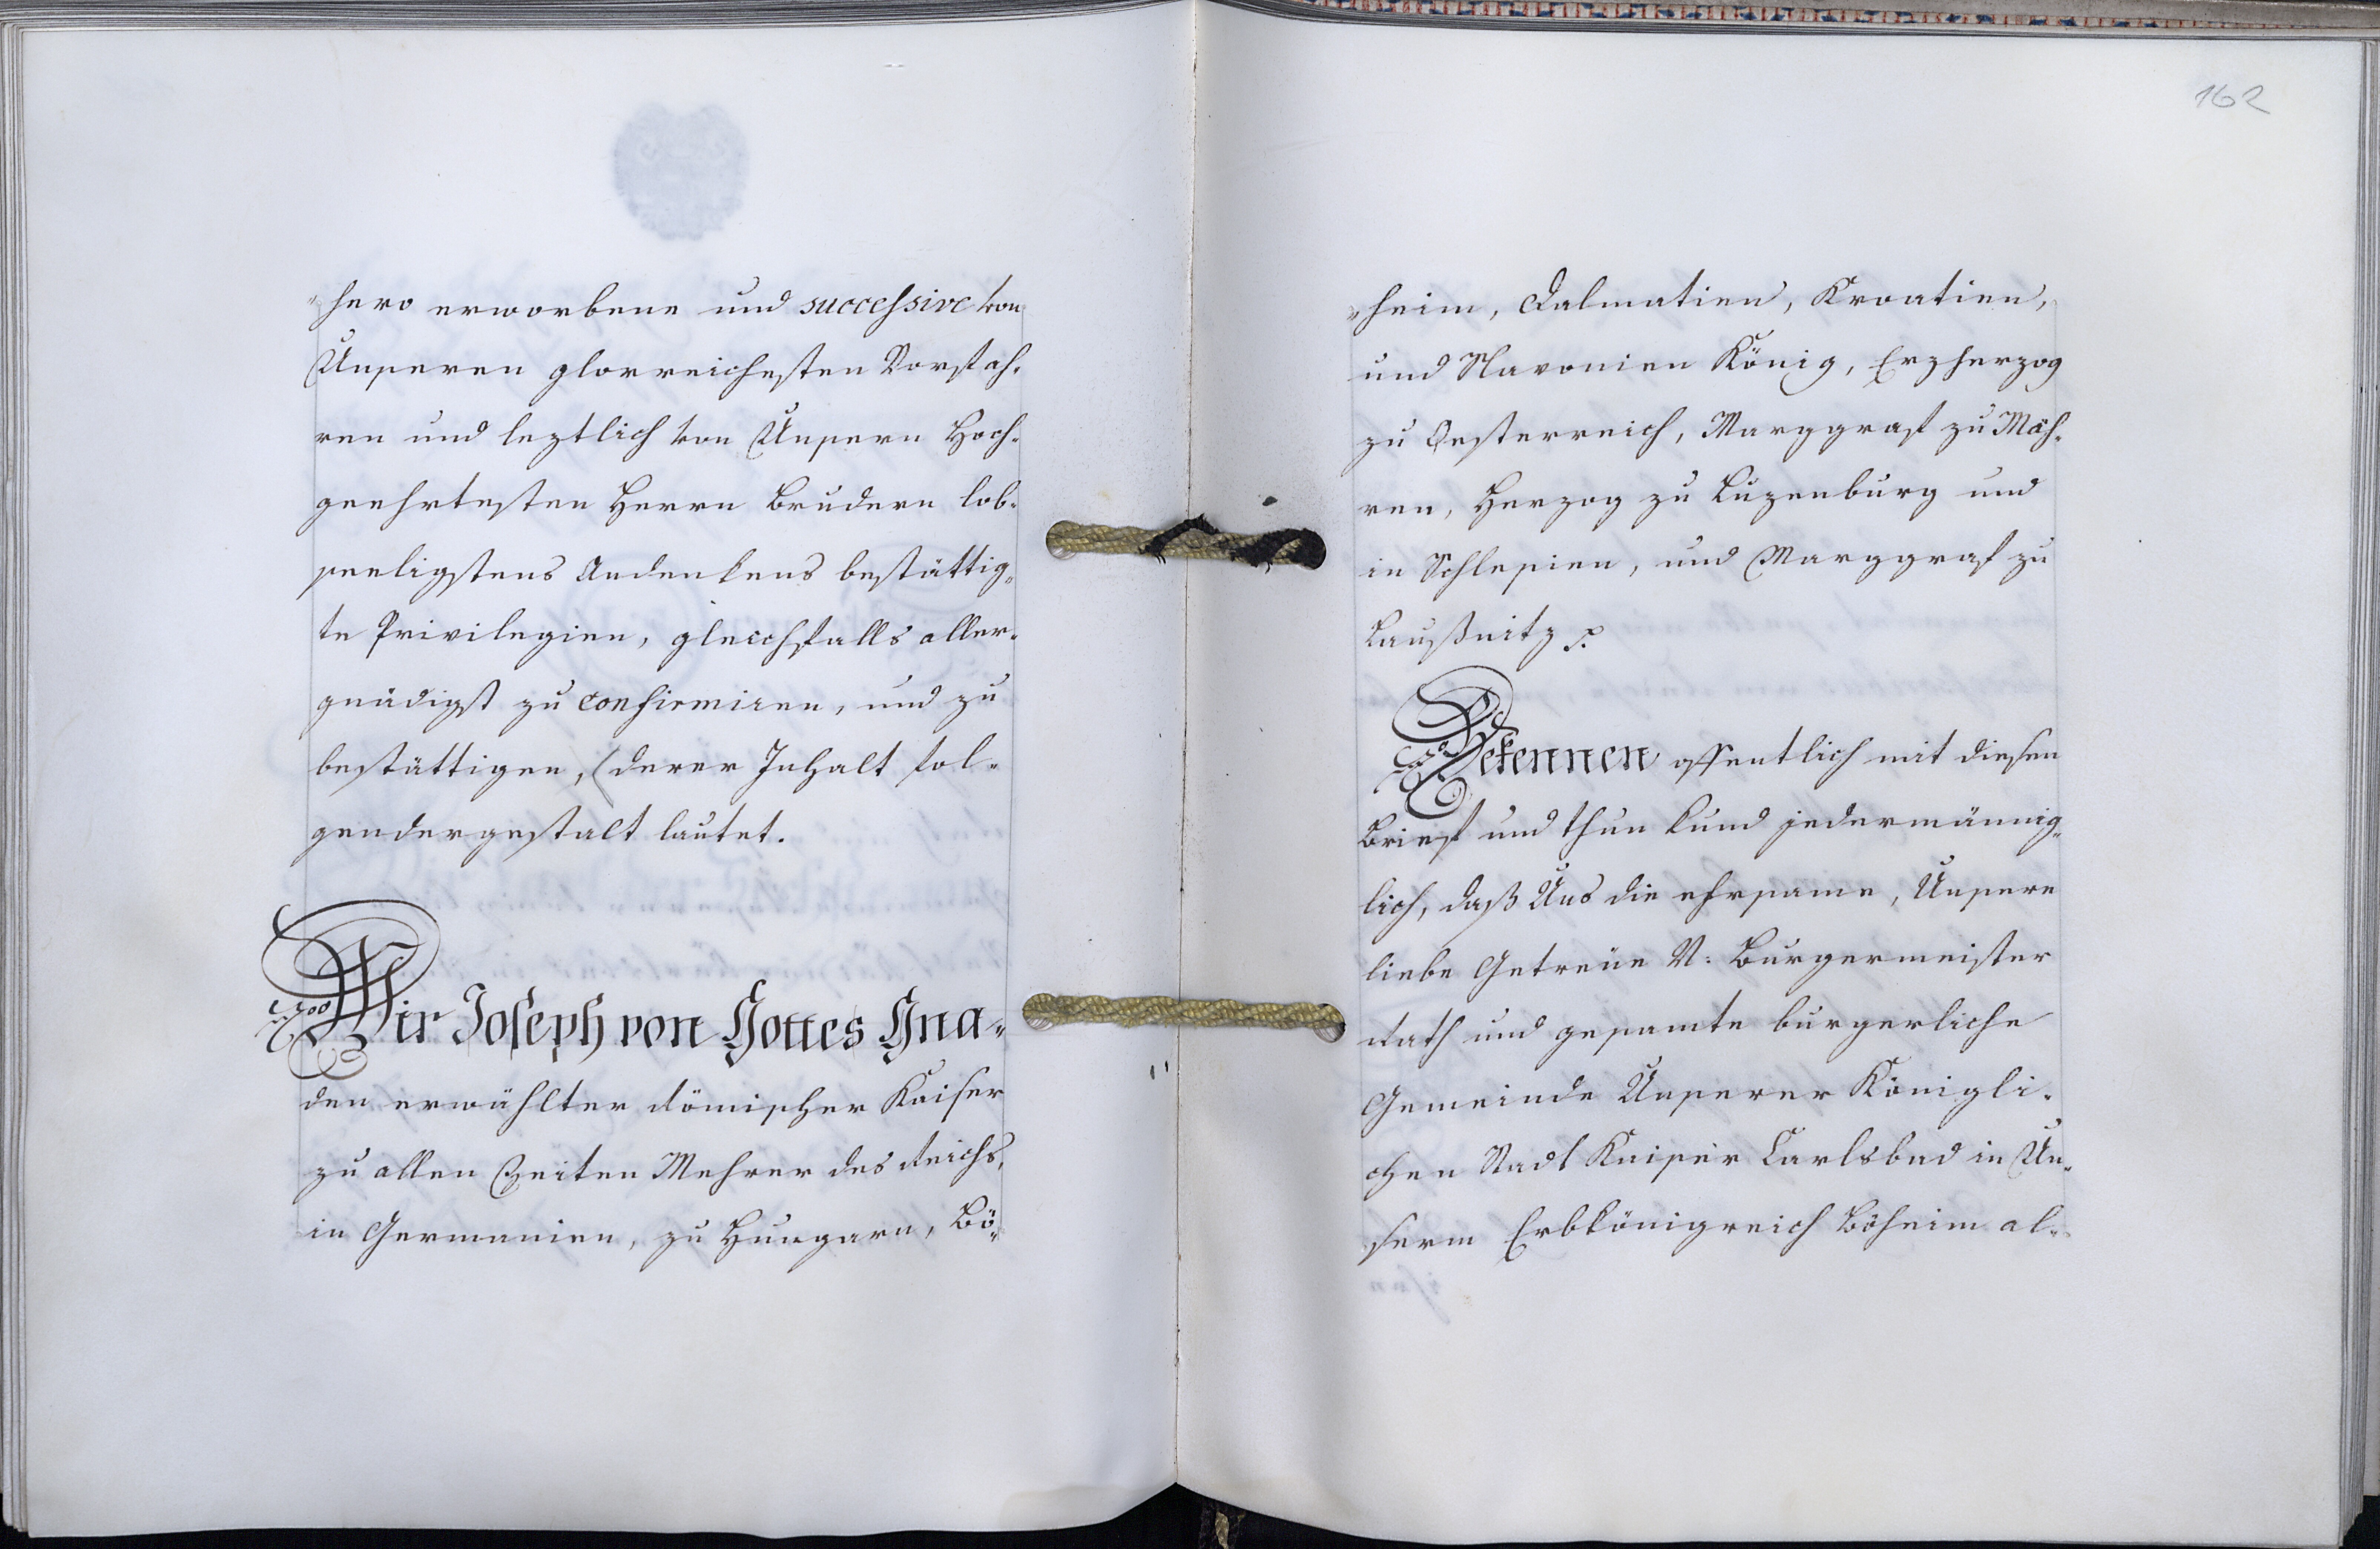 hero erworbene und successive von
Unseren glorreichesten Vorfah-
ren und leztlich von Unsern Hoch-
geehrtesten Herrn Brudern lob-
seeligstens Andenkens bestättig-
te Privilegien, gleichfalls aller-
gnädigst zu confirmiren, und zu
bestättigen, (derer Inhalt fol-
gendergestalt lautet.
Wir Joseph von Gottes Gna-
den erwählter Römischer Kaiser
zu allen Zeiten Mehrer des Reichs,
in Germanien, zu Hungarn, Bö-
162
heim, Dalmatien, Kroatien,
und Slavonien König, Erzherzog
zu Oesterreich, Marggraf zu Mäh-
ren, Herzog zu Luzenburg und
in Schlesien, und Marggraf zu
Laußnitz
Bekennen offentlich mit diesen
Brief und thun kund jedermännig-
lich, daß Uns die ehrsame, Unsere
liebe Getreüe N: Burgermeister
Rath und gesamte burgerliche
Gemeinde Unserer Königli-
chen Stadt Kaiser Carlsbad in Un-
serm Erbkönigreich Böheim al-